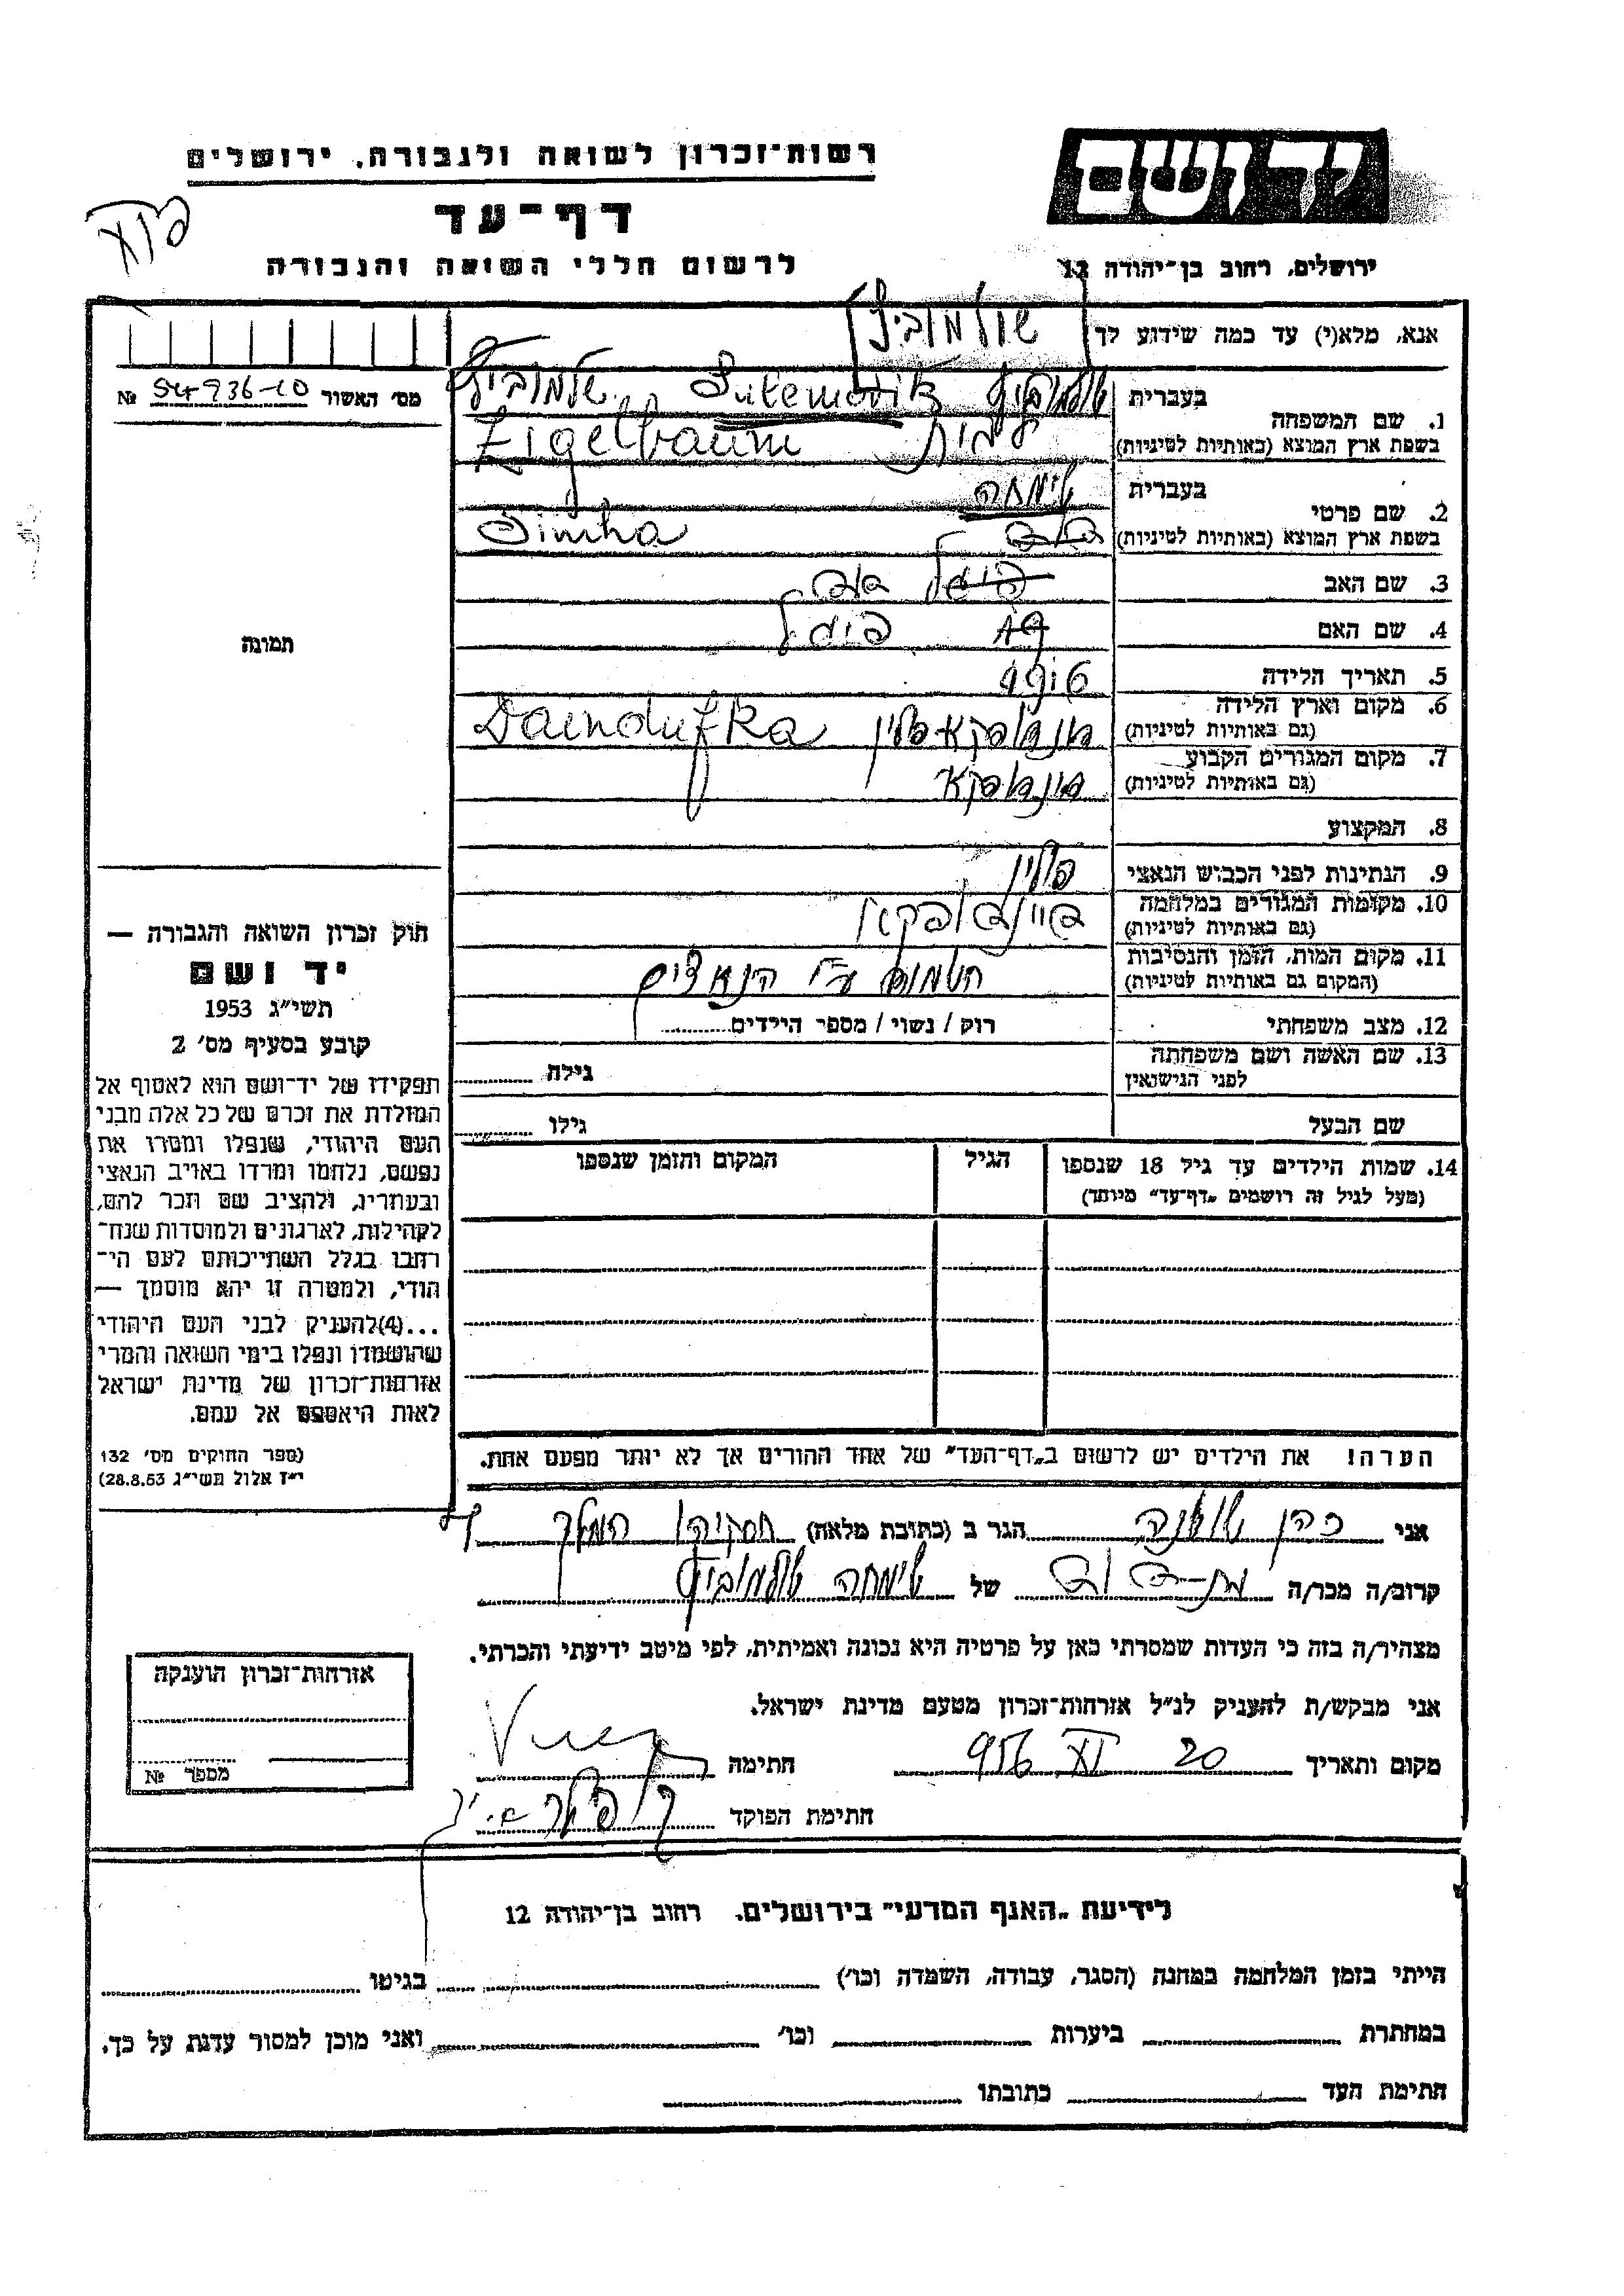 רשות־זכרון לשואה ולגבורה, ירושלים
יד ושם
דף־עד
לרשום חללי השואה והגבורה
ירושלים, רחוב בן־יהודה 12
אנא, מלא(י) עד כמה שידוע לך
שולמוביץ
מס' האשור № 54936-10
1. שם המשפחה
בעברית שולמוביץ Sulemovitz שלמוביץ
בשפת ארץ המוצא (באותיות לטיניות) Zigelbaum
2. שם פרטי
בעברית שימחה
בשפת ארץ המוצא (באותיות לטיניות) Simha
3. שם האב
4. שם האם
5. תאריך הלידה
6. מקום וארץ הלידה
(גם באותיות לטיניות) פולין
7. מקום המגורים הקבוע
(גם באותיות לטיניות)
8. המקצוע
9. הנתינות לפני הכבוש הנאצי פולין
10. מקומות המגורים במלחמה
(גם באותיות לטיניות)
11. מקום המות, הזמן והנסיבות
(המקום גם באותיות לטיניות) ע"י הנאצים
12. מצב משפחתי רוק / נשוי / מספר הילדים
13. שם האשה ושם משפחתה
לפני הנישואין גילה
שם הבעל גילו
14. שמות הילדים עד גיל 18 שנספו הגיל המקום והזמן שנספו
(מעל לגיל זה רושמים „דף־עד" מיוחד)
הערה! את הילדים יש לרשום ב„דף־העד" של אחד ההורים אך לא יותר מפעם אחת.
תמונה
חוק זכרון השואה והגבורה —
יד ושם
תשי"ג 1953
קובע בסעיף מס' 2
תפקידו של יד־ושם הוא לאסוף אל
המולדת את זכרם של כל אלה מבני
העם היהודי, שנפלו ומסרו את
נפשם, נלחמו ומרדו באויב הנאצי
ובעוזריו, ולהציב שם וזכר להם,
לקהילות, לארגונים ולמוסדות שנח־
רבו בגלל השתייכותם לעם הי־
הודי, ולמטרה זו יהא מוסמך —
...(4)להעניק לבני העם היהודי
שהושמדו ונפלו בימי השואה והמרי
אזרחות־זכרון של מדינת ישראל
לאות היאספם אל עמם.
(ספר החוקים מס' 132
י"ז אלול תשי"ג 28.8.53)
אני כהן שושנה הגר ב (כתובת מלאה) חזקיהו המלך
קרוב/ה מכר/ה בת-דוד של שימחה שולמוביץ
מצהיר/ה בזה כי העדות שמסרתי כאן על פרטיה היא נכונה ואמיתית, לפי מיטב ידיעתי והכרתי.
אני מבקש/ת להעניק לנ"ל אזרחות־זכרון מטעם מדינת ישראל.
מקום ותאריך 20 XI 956 חתימה
חתימת הפוקד
אזרחות־זכרון הוענקה
מספר №
לידיעת „האגף המדעי" בירושלים. רחוב בן־יהודה 12
הייתי בזמן המלחמה במחנה (הסגר, עבודה, השמדה וכו') בגיטו
במחתרת ביערות וכו' ואני מוכן למסור עדות על כך.
חתימת העד כתובתו